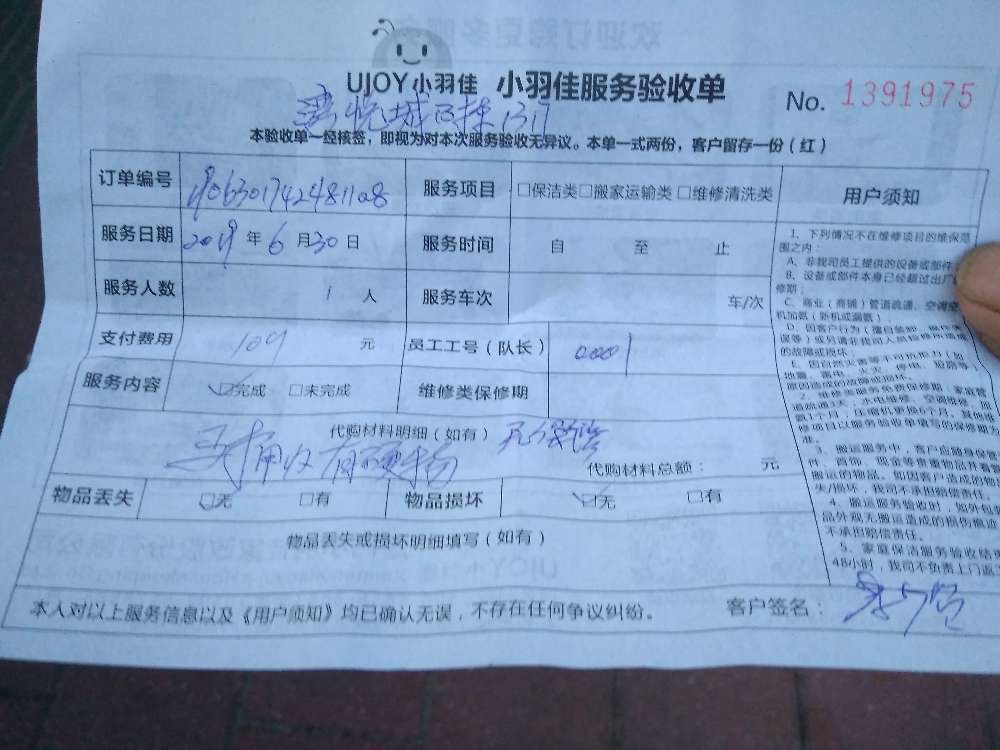 UJOY小羽佳 小羽佳服务验收单
No. 1391975
悦城B栋1317
本验收单一经核签，即视为对本次服务验收无异议。本单一式两份，客户留存一份（红）
订单编号 服务项目 □保洁类□搬家运输类 □维修清洗类
服务日期 2019 年 6 月 30 日 服务时间 自 至 止
服务人数 1 人 服务车次 车/次
支付费用 109 元 员工工号（队长） 00001
服务内容 ☑完成 □未完成 维修类保修期
代购材料明细（如有）
有硬物
代购材料总额： 元
物品丢失 ☑无 □有 物品损坏 ☑无 □有
物品丢失或损坏明细填写（如有）
本人对以上服务信息以及《用户须知》均已确认无误，不存在任何争议纠纷。 客户签名：
用户须知
1、下列情况不在维修项目的维保范
围之内：
A、非我司员工提供的设备或部件
B、设备或部件本身已经超过出厂
修期；
C、商业（商铺）管道疏通、空调空
机加氨（新机或漏氨）
D、因客户行为（擅自装卸、操作失
误等）或另请非我司人员检修所造成
的故障或损坏
E、因自然灾害等不可抗力（如
地震、雷电、火灾、停电、短路等）
原因造成的故障或损坏。
2、维修类服务免费保修期：家庭管
道疏通3天，水电维修、空调维修、
1个月，压缩机更换6个月，其他维
修项目以服务验收单填写的保修期为
准。
3、搬运服务中，客户应随身保管
件、首饰、现金等贵重物品并看管
搬运的物品。如因客户造成的物品
失/损坏，我司不承担赔偿责任。
4、搬运服务验收时，如外包
品外观无搬运造成的损伤痕迹
不承担赔偿责任。
5、家庭保洁服务验收结束
48小时，我司不负责上门返工